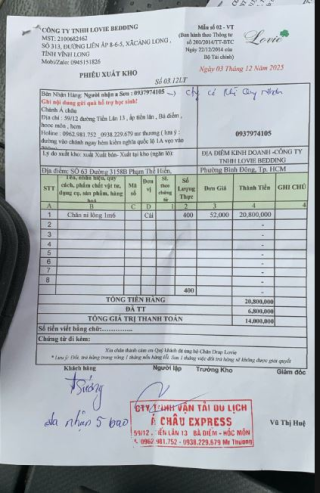 CÔNG TY TNHH LOVIE BEDDING
MST: 2100682462
SỐ 313, ĐƯỜNG LIÊN ẤP 8-6-5, XÃ CÀNG LONG,
TỈNH VĨNH LONG
Mobi/Zalo: 0945151826
Mẫu số 02 - VT
(Ban hành theo Thông tư
số 200/2014/TT-BTC
Ngày 22/12/2014 của
Bộ Tài chính)
Lovie
Ngày 03 Tháng 12 Năm 2025
PHIẾU XUẤT KHO
Số 03.12LT
Đơn Nhận Hàng: Người nhận a Sơn : 0937974105
Gửi nội dung gửi quà hỗ trợ học sinh!
Chành Á châu
Địa chỉ : 59/12 đường Tiền Lân 13 , ấp tiền lân , Bà điểm ,
hooc môn , Sơn
Hotline : 0962.981.752 0938.229.679 mr thương ( lưu ý :
đường vào chành ngay hẻm kiểm nghĩa quốc lộ 1A vọt vào
0937974105
Lý do xuất kho: xuất Xuất bán- Xuất tại kho (ngăn lô):
ĐỊA ĐIỂM KINH DOANH -CÔNG TY
TNHH LOVIE BEDDING
Địa điểm: SỐ 63 Đường 3158B Phạm Thế Hiển,
Phường Bình Đông, Tp. HCM
STT
Tên, nhãn hiệu, quy cách, phẩm chất vật tư, dụng cụ, sản phẩm, hàng hoá
Mã số
Đơn vị
Số Lượng Thực
Đơn Giá
Thành Tiền
GHI CHÚ
A B C D 1 2 3 4
1 Chăn nỉ lông 1m6 Cái 400 52,000 20,800,000
2 -
3 -
4 -
5 -
6 -
7 -
8 -
400
TỔNG TIỀN HÀNG 20,800,000
ĐÃ TT 6,800,000
TỔNG GIÁ TRỊ THANH TOÁN 14,000,000
Số tiền viết bằng chữ:
Chứng từ đi kèm:
Xin chân thành cảm ơn Quý khách đã ủng hộ Chăn Drap Lovie
Khách hàng
Người lập
Trưởng Kho
Giám đốc
đã nhận 5 bao
CTY TNHH VẬN TẢI DU LỊCH
Á CHÂU EXPRESS
59/12 . TIỀN LÂN 13 BÀ ĐIỂM - HÓC MÔN
0962.981.752 - 0938.229.679 Mr Thương
Vũ Thị Huệ